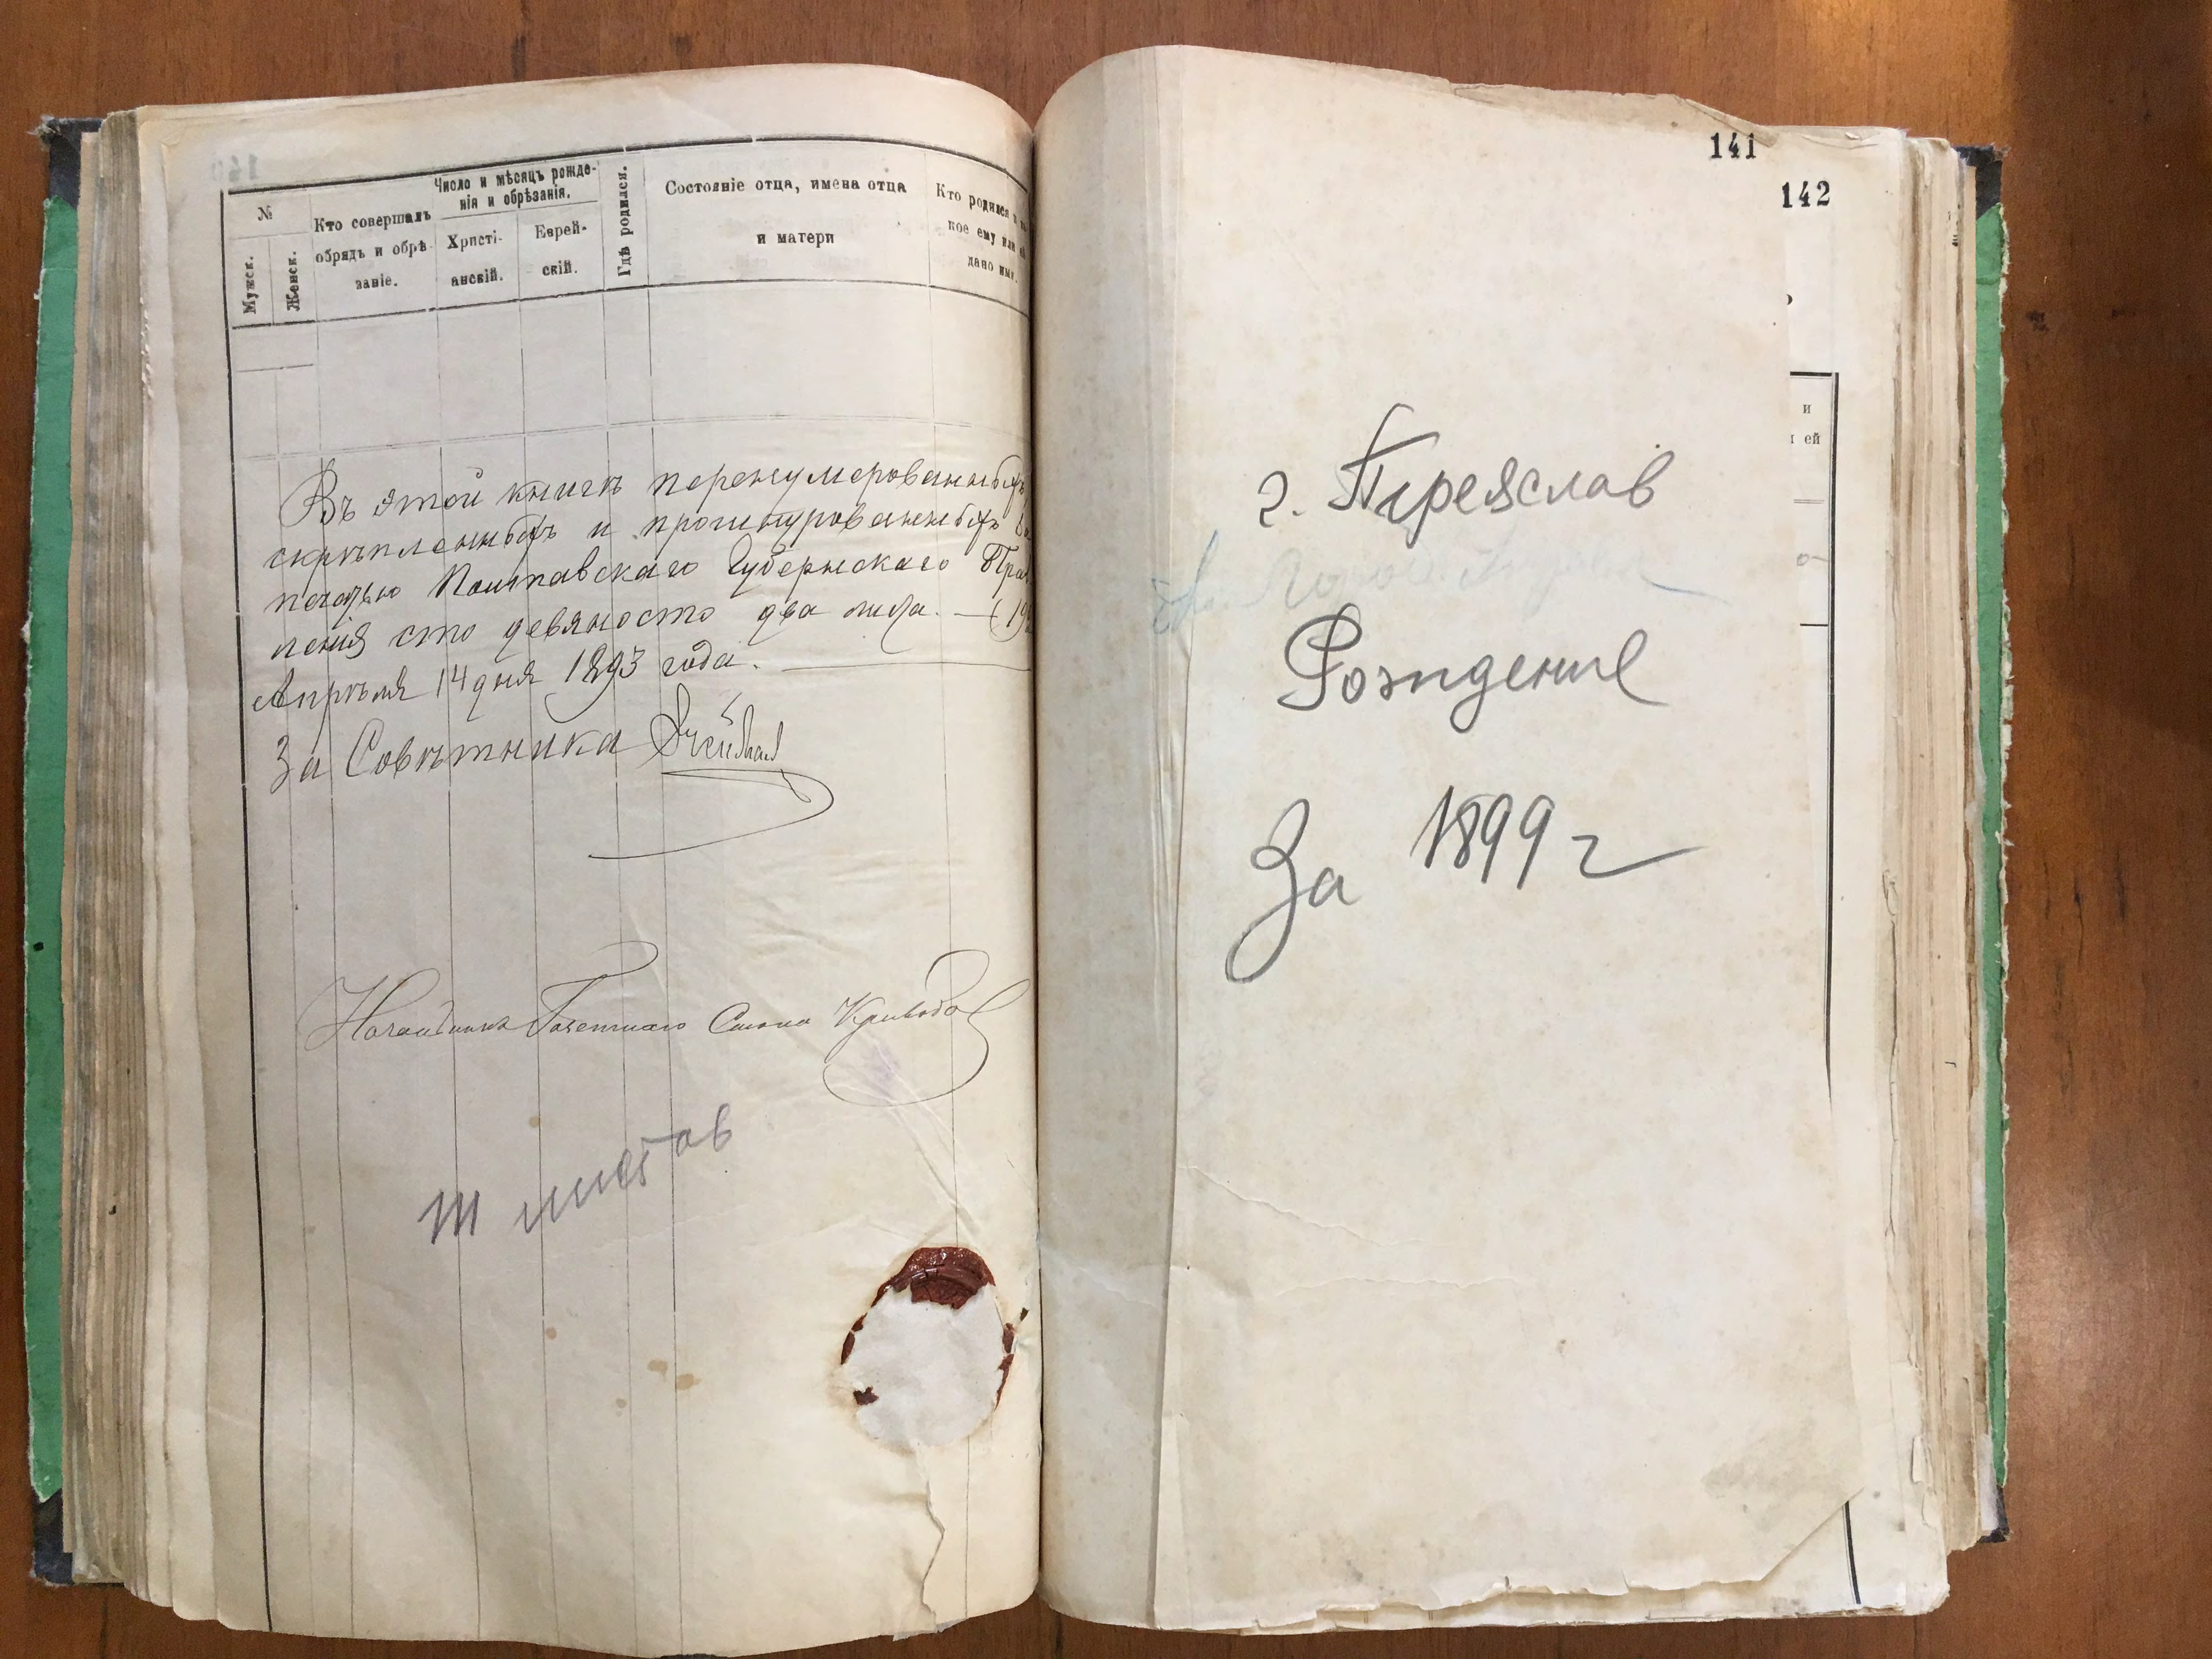 №
Мужск.
Женск.
Кто совершалъ
обрядъ и обрѣ-
заніе.
Число и мѣсяцъ рожде-
нія и обрѣзанія.
Христі-
анскій.
Еврей-
скій.
Гдѣ родился.
Состояніе отца, имена отца
и матери
Кто родился и
кое ему или
дано имя.
Въ этой книгѣ перенумерованныхъ
скрѣпленныхъ и прошнурованныхъ
печатью Полтавскаго Губернскаго Прав
ленія сто девяносто два листа. — (19
Апрѣля 14 дня 1893 года.
За Совѣтника
Начальникъ Газетнаго Стола
листов
141
142
и
ей
г. Переяслав
Рождение
За 1899 г